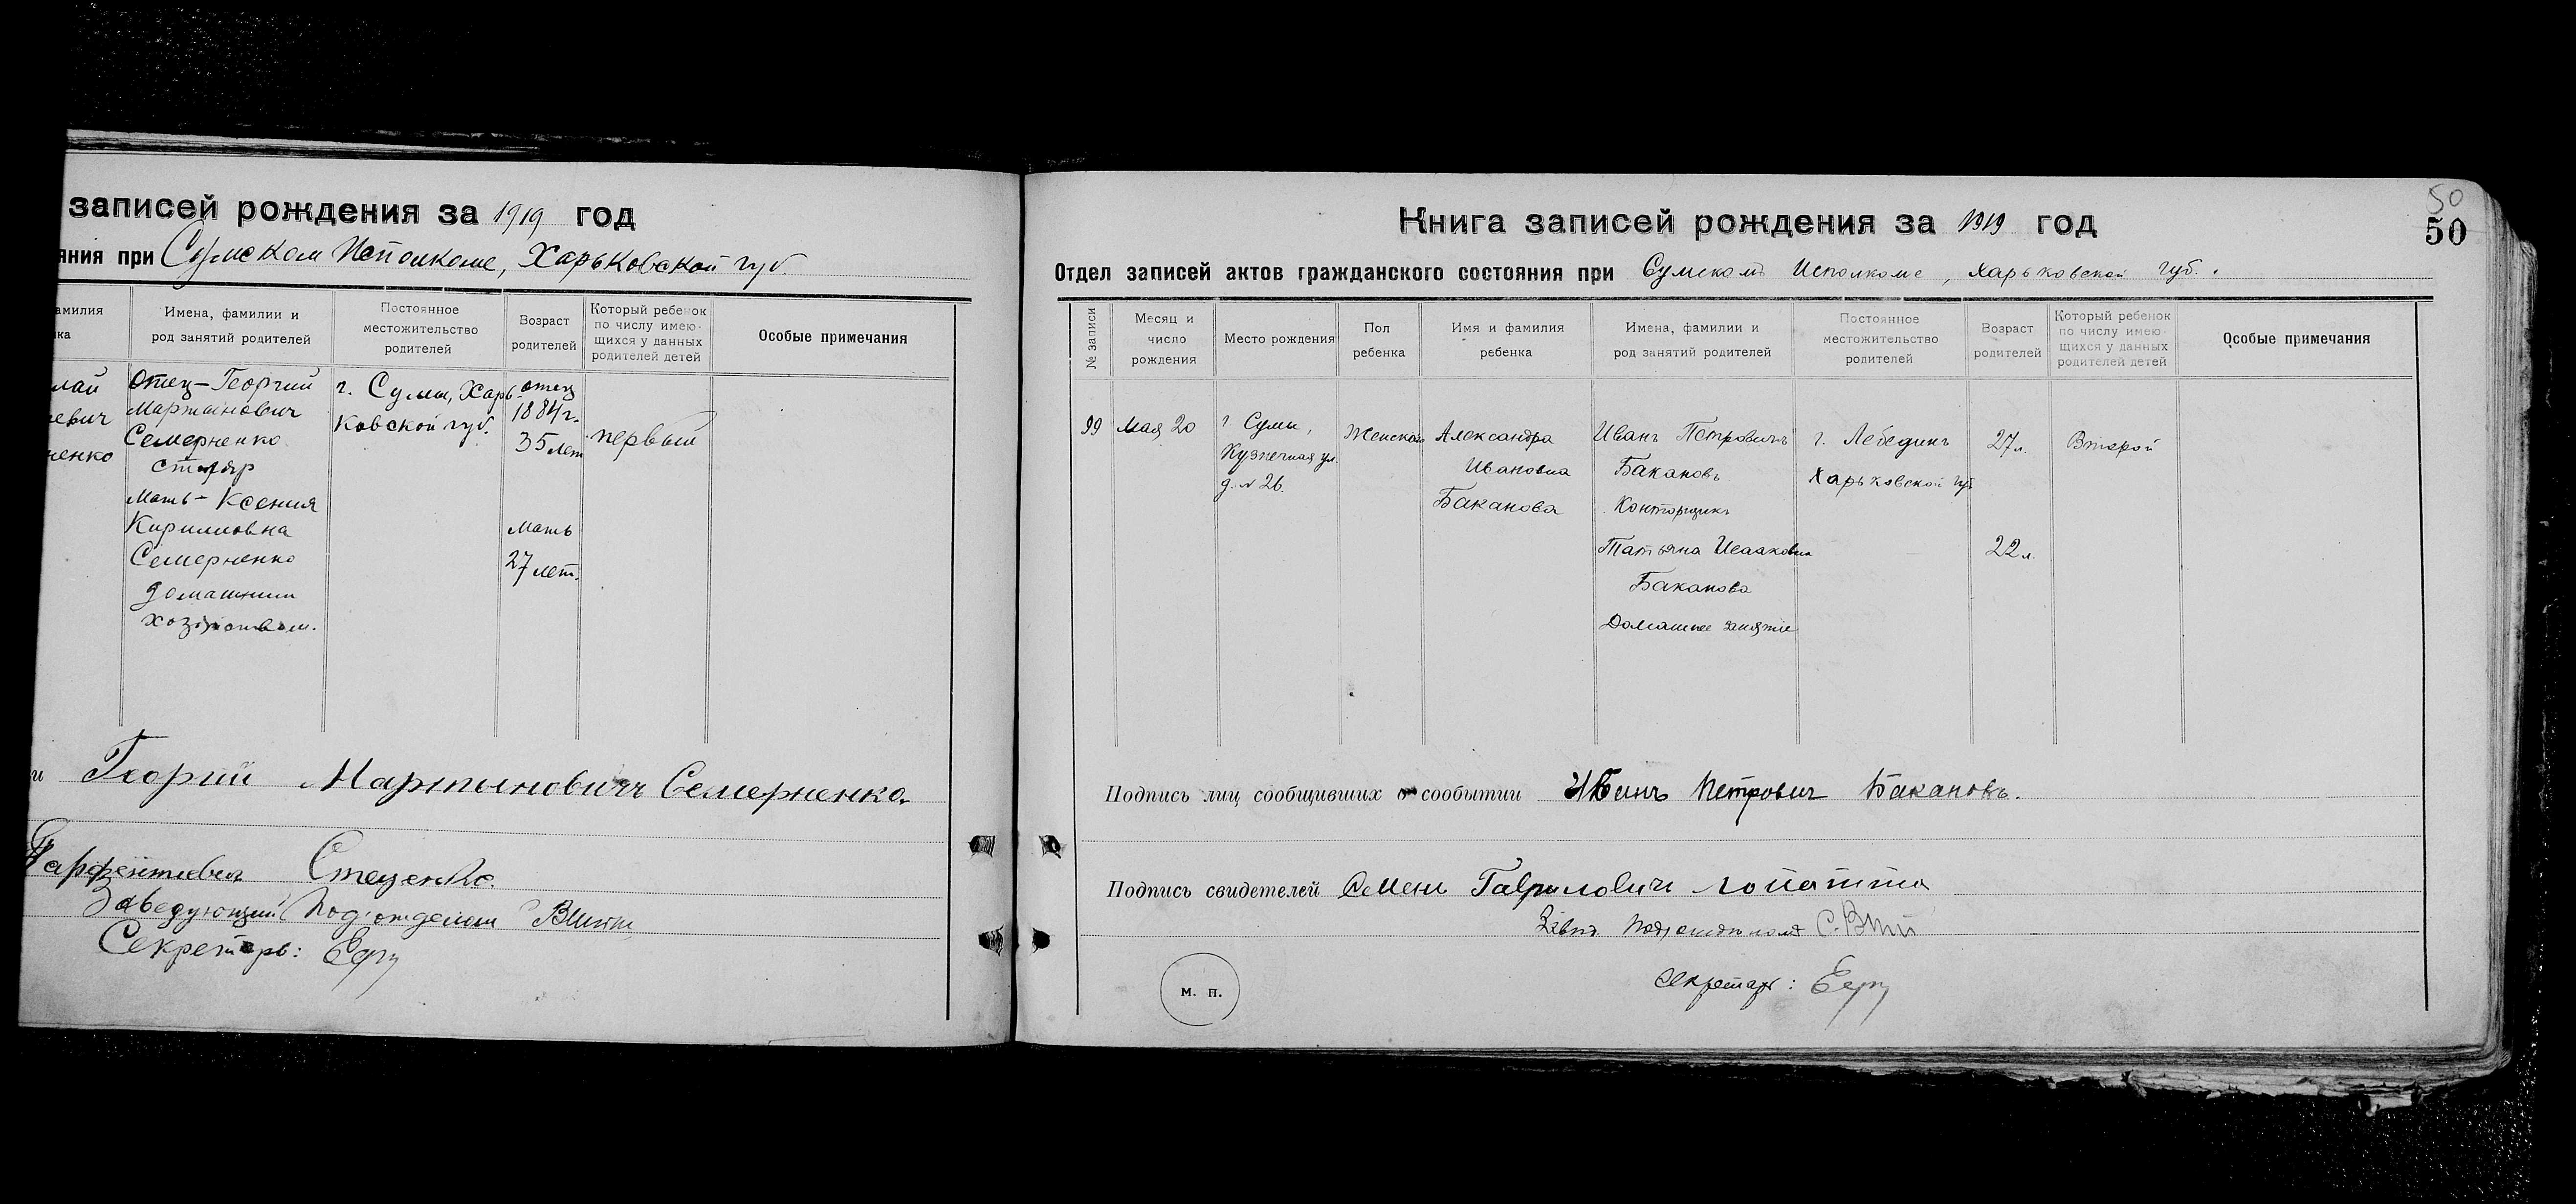 записей рождения за 1919 год
яния при Сумском Исполкоме, Харьковской губ.
амилия
ка
Имена, фамилии и
род занятий родителей
Постоянное
местожительство
родителей
Возраст
родителей
Который ребенок
по числу имею-
щихся у данных
родителей детей
Особые примечания
лай
евич
ненко
Отец – Георгий
Мартынович
Семерненко
столяр
Мать – Ксения
Кирилловна
Семерненко
домашним
хозяйством.
г. Сумы, Харь-
ковской губ.
отец
1884 г.
35 лет
мать
27 лет.
первый
и Георгий Мартыновичъ Семерненко.
Стеценко.
Заведующий Подотделом
Секретарь:
50
50
Книга записей рождения за 1919 год
Отдел записей актов гражданского состояния при Сумскомъ Исполкоме, Харьковской губ.
№ записи
Месяц и
число
рождения
Место рождения
Пол
ребенка
Имя и фамилия
ребенка
Имена, фамилии и
род занятий родителей
Постоянное
местожительство
родителей
Возраст
родителей
Который ребенок
по числу имею-
щихся у данных
родителей детей
Особые примечания
99
Мая 20
г. Сумы,
Кузнечная ул.
д. № 26.
Женской
Александра
Ивановна
Баканова
Иванъ Петровичъ
Бакановъ
Конторщикъ
Татьяна Исааковна
Баканова
Домашнее занятие
г. Лебединъ
Харьковской губ
27 л.
22 л.
Второй
Подпись лиц сообщивших о сообытии Иванъ Петрович Бакановъ.
Подпись свидетелей Семен Гаврилович Лопатта
Завед. Подотделомъ
м. п.
Секретарь: